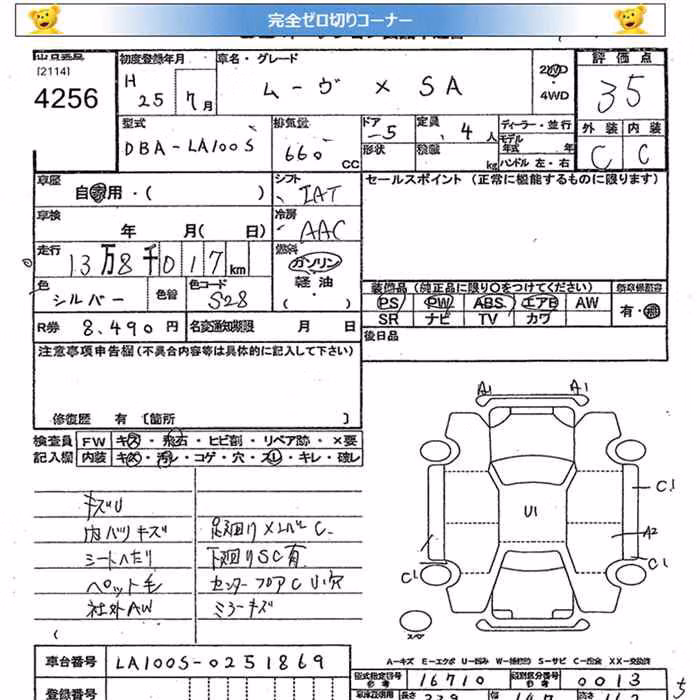 完全ゼロ切りコーナー
[2114]
4256
初度登録年月
H 25 7月
車名・グレード
ムーヴ X SA
2WD
・
4WD
評価点
35
外装 内装
C C
型式
DBA-LA100S
排気量
660 CC
ドア
-5
形状
定員
4人
積載
kg
ディーラー・並行
モデル年式 年
ハンドル 左・右
車歴
自家用・( )
シフト
IAT
セールスポイント (正常に機能するものに限ります)
車検
年 月( 日)
冷房
AAC
走行
13万8千017km
燃料
ガソリン
軽油
( ・ )
色
シルバー
色替
色コード
S28
装備品(純正品に限り○をつけてください)
PS PW ABS エアB AW
SR ナビ TV カワ
有・無
R券 8,490円
名変通知期限 月 日
後日品
注意事項申告欄(不具合内容等は具体的に記入して下さい)
修復歴 有 〔箇所 〕
検査員記入欄
FW キズ・飛石・ヒビ割・リペア跡・×要
内装 キズ・汚レ・コゲ・穴・スレ・キレ・破レ
キズU
内バリキズ 足廻りメンバーC
シートへたり 下廻りSC有
ペット毛 センターフロアC小穴
社外AW ミラーキズ
A1 A1
C1
U1
A2
C1 C1
スペア
A-キズ E-エクボ U-凹み W-補修跡 S-サビ C-腐食 XX-交換済
車台番号 LA100S-0251869
型式指定番号 参考 16710
類別区分番号 参考 0013
登録番号
長さ 339
147